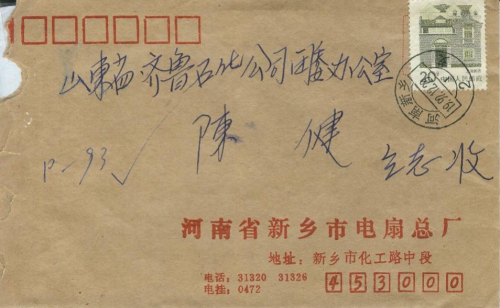 山東省齐鲁石化公司团委办公室
陳 健 同志 收
P-93
河南省新乡市电扇总厂
地址：新乡市化工路中段
电话：31320 31326
电挂：0472
453000
20
中国人民邮政
河南新乡